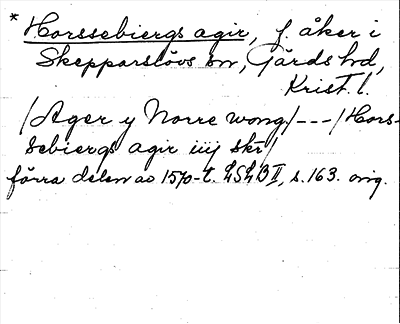 * Horssebiergs agir, f. åker i
Skepparslövs sn, Gärds hd,
Krist. l.
/Ager y Norre wong/---/Hors-
sebiergs agir iiij skr/
förra delen av 1570-t. LSLB II, s. 163. orig.